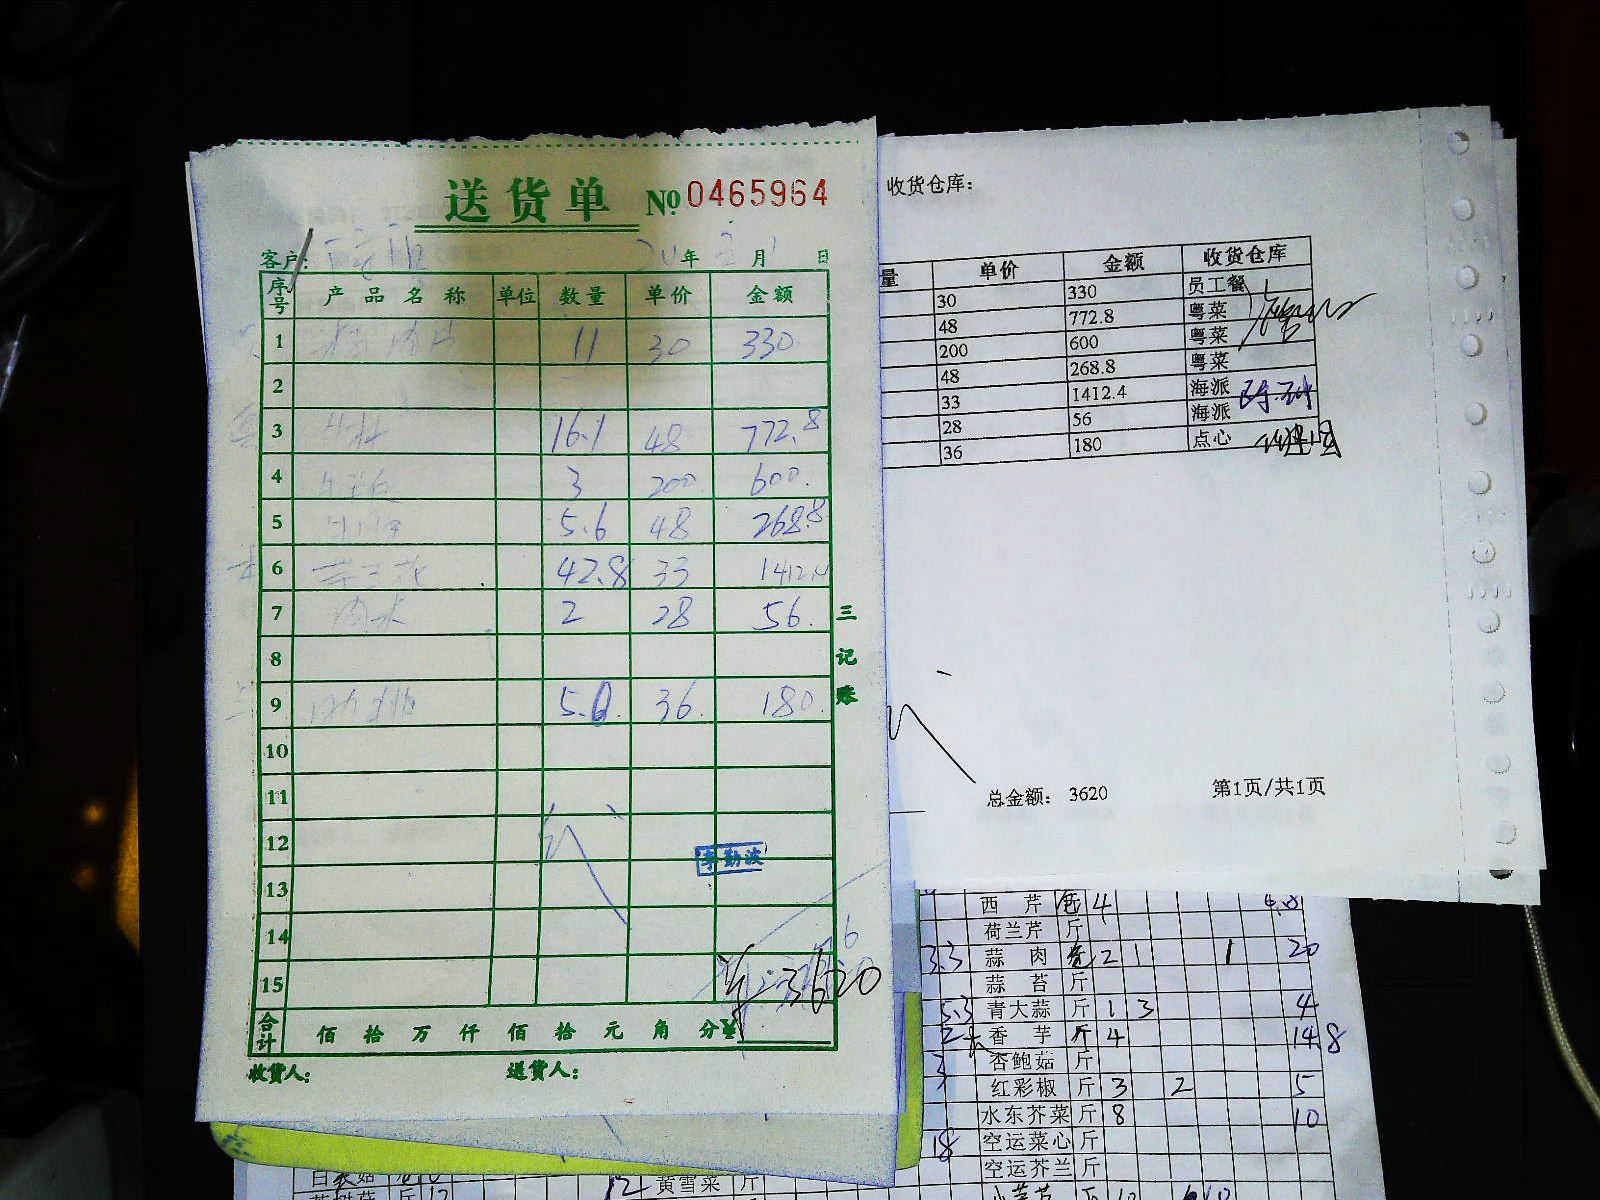 送货单 № 0465964
客户: 年 月 1 日
序号 产品名称 单位 数量 单价 金额
1 11 30 330
2
3 16.1 48 772.8
4 3 200 600.
5 5.6 48 268.8
6 42.8 33 1412.4
7 肉水 2 28 56.
8
9 5.0 36. 180.
10
11
12
13
14
15 3620
李勤波
合计 佰 拾 万 仟 佰 拾 元 角 分 ¥
收货人: 送货人:
三记账
收货仓库:
量 单价 金额 收货仓库
30 330 员工餐
48 772.8 粤菜
200 600 粤菜
48 268.8 粤菜
33 1412.4 海派
28 56 海派
36 180 点心
总金额: 3620 第1页/共1页
西芹 4 6.8
荷兰芹 斤
3.3 蒜肉 2 1 1 20
蒜苔 斤
5.3 青大蒜 斤 1 3 4
2 香芋 斤 4 14.8
3 杏鲍菇 斤
红彩椒 斤 3 2 5
水东芥菜 斤 8 10
18 空运菜心 斤
空运芥兰 斤
12 黄雪菜 斤